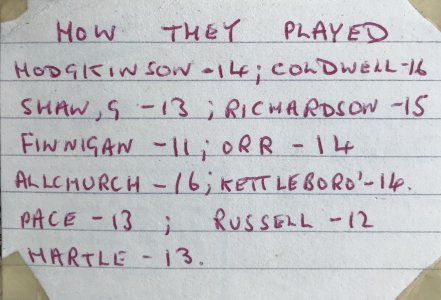 HOW THEY PLAYED
HODGKINSON - 14; COLDWELL - 16
SHAW, G - 13 ; RICHARDSON - 15
FINNIGAN - 11; ORR - 14
ALLCHURCH - 16; KETTLEBORO' - 14.
PACE - 13 ; RUSSELL - 12
HARTLE - 13.